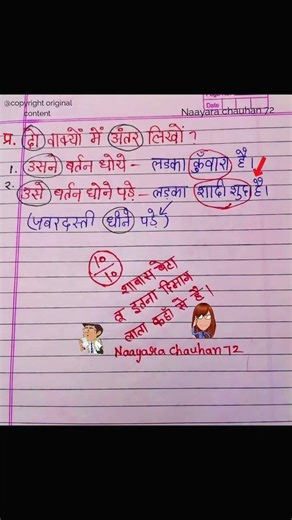 @copyright original
content
Naayara chauhan 72
Date
प्र. दो वाक्यों में अंतर लिखों ?
1. उसने बर्तन धोये - लडका कुँवारा है।
2. उसे बर्तन धोने पड़े - लडका शादी शुदा है।
(जबरदस्ती धोने पड़े)
10/10
शाबास बेटा
तू इतना दिमाग
लाता कहाँ से है।
Naayara chauhan 72